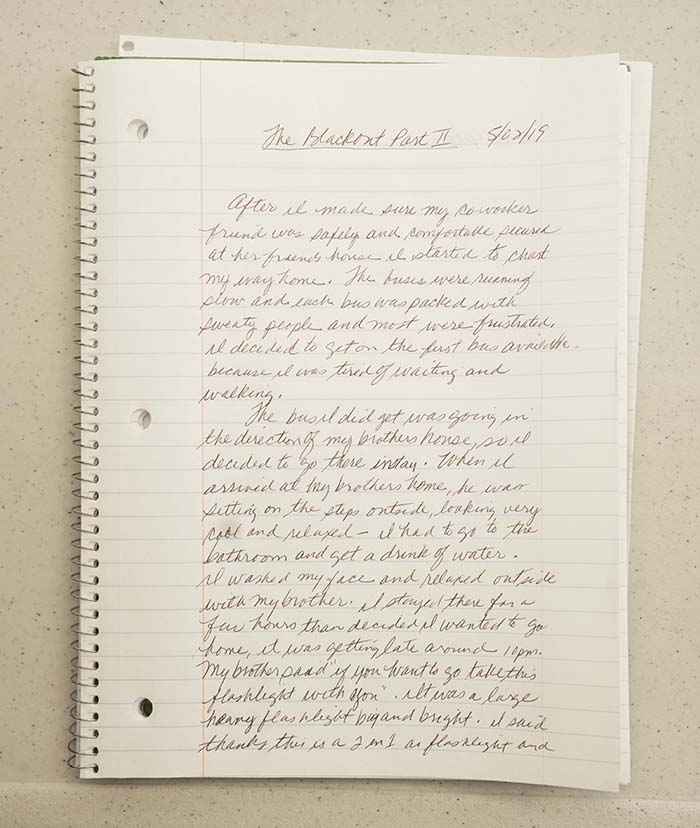 The Blackout Part II 5/02/19
After I made sure my co-worker
friend was safely and comfortable secured
at her friends house I started to chart
my way home. The buses were running
slow and each bus was packed with
sweaty people and most were frustrated.
I decided to get on the first bus available
because I was tired of waiting and
walking.
The bus I did get was going in
the direction of my brothers house, so I
decided to go there. When I
arrived at my brothers home, he was
sitting on the steps outside, looking very
cool and relaxed – I had to go to the
bathroom and get a drink of water.
I washed my face and relaxed outside
with my brother. I stayed there for a
few hours than decided I wanted to go
home, it was getting late around 10pm.
My brother said "if you want to go take this
flashlight with you". It was a large
heavy flashlight big and bright. I said
thanks this is a 2 in 1 a flashlight and